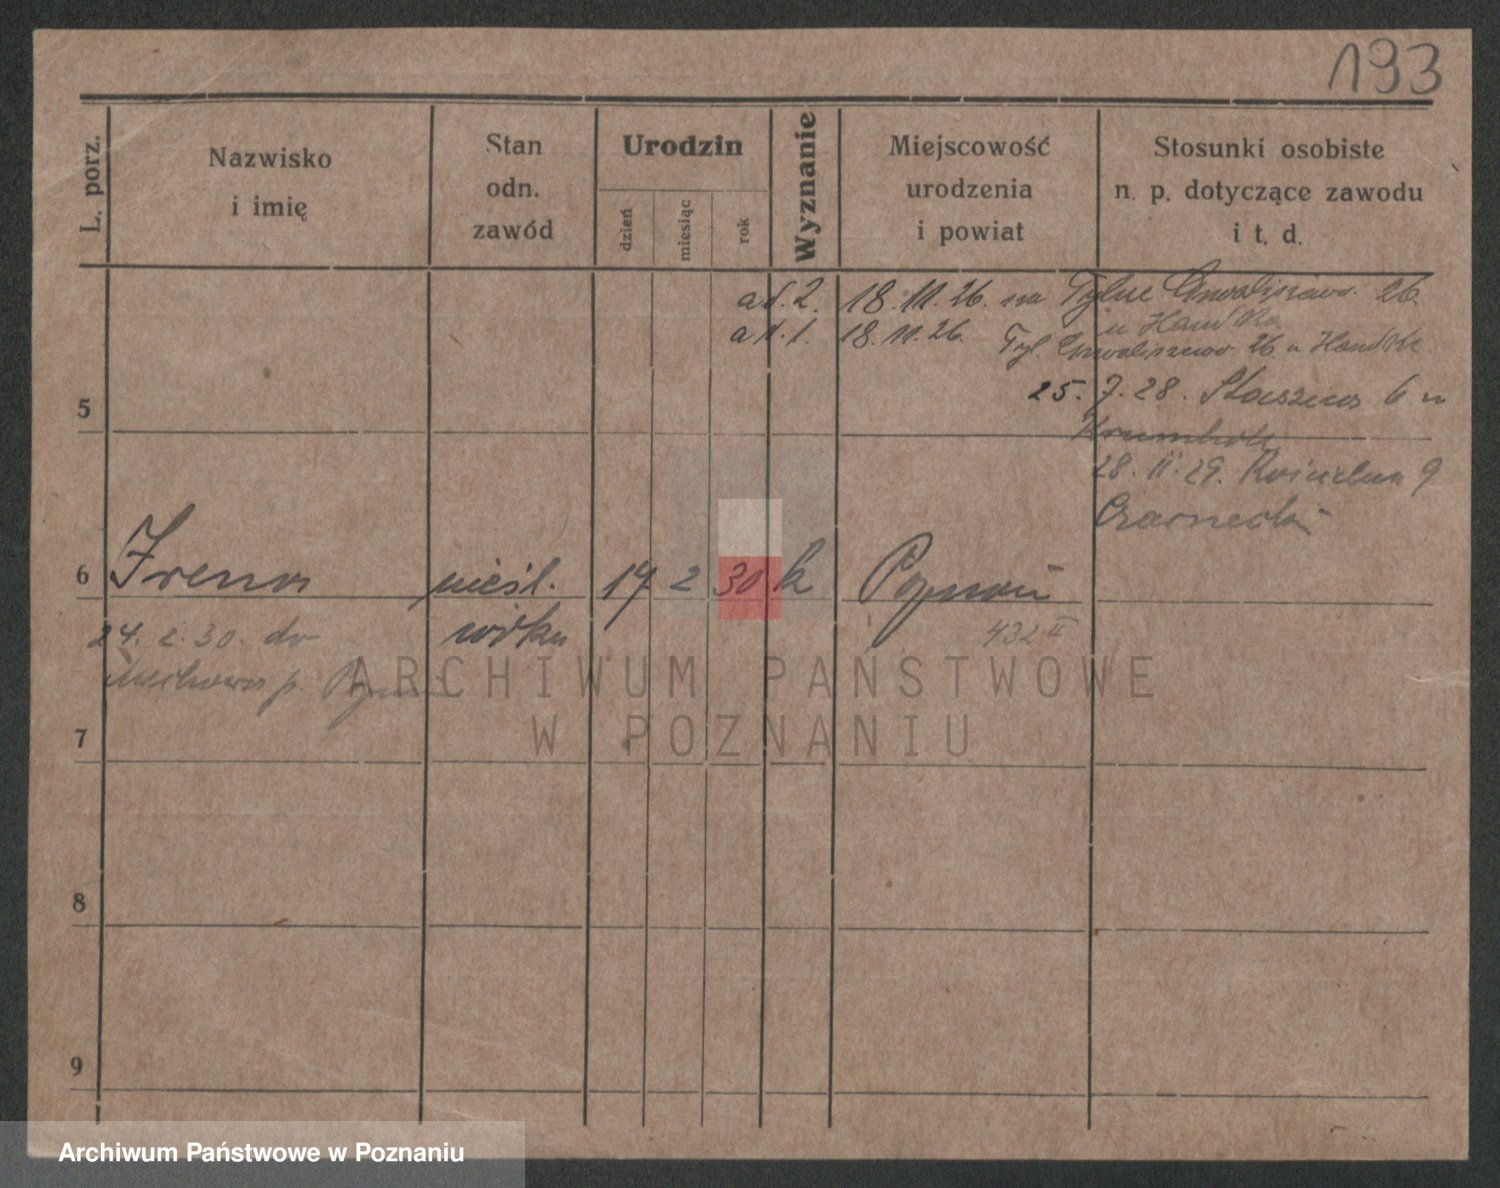 193
L. porz.
Nazwisko
i imię
Stan
odn.
zawód
Urodzin
dzień
miesiąc
rok
Wyznanie
Miejscowość
urodzenia
i powiat
Stosunki osobiste
n. p. dotyczące zawodu
i t. d.
ad. 2. 18.11.26. na Tylne Chwaliszewo 26
u Handke
ad. 1. 18.11.26. Tyl. Chwaliszewo 26 u Handke
25.7.28. Staszica 6 u
5
Krumholz
28.11.29. 9
Czarnecki
6 Irena nieśl. 17 2 30 k Poznań
24.2.30. do wóku 432 II
p. Pozn
ARCHIWUM PAŃSTWOWE
W POZNANIU
7
8
9
Archiwum Państwowe w Poznaniu